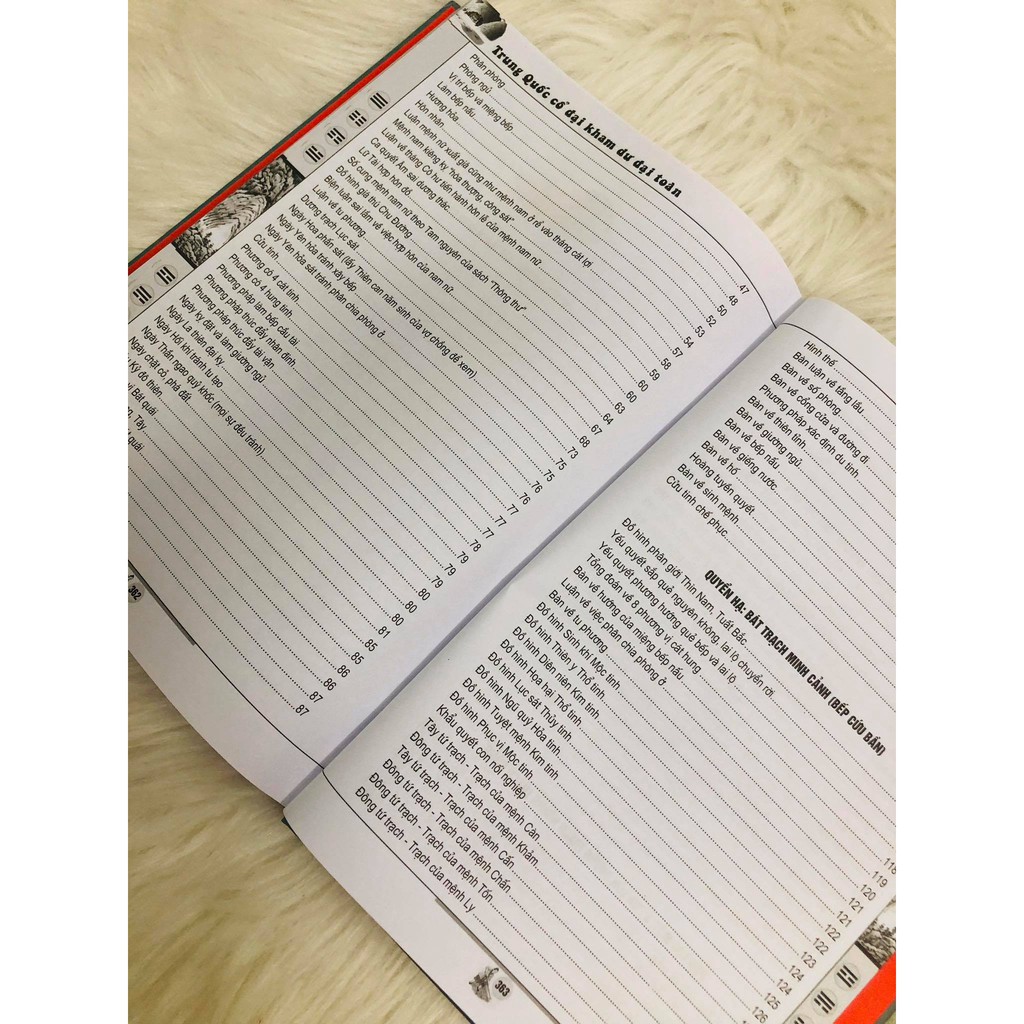 Trung Quốc cổ đại kham dư đại toàn
Phân phòng
Phòng ngủ
Vị trí bếp và miệng bếp
Làm bếp nấu
Hương hỏa
Hôn nhân
Luận mệnh nữ xuất giá cũng như mệnh nam ở rể vào tháng cát lợi
Mệnh nam kiêng kỵ "hòa thượng, công sát"
Luận về tháng Có hư tiến hành hôn lễ của mệnh nam nữ
Ca quyết Âm sai dương thác
Lữ Tài hợp hôn đồ
Số cung mệnh nam nữ theo Tam nguyên của sách "Thông thư"
Đồ hình giá thú Chu Đường
Biện luận sai lầm về việc hợp hôn của nam nữ
Luận về tu phương
Dương trạch Lục sát
Ngày Hoa phấn sát (lấy Thiên can năm sinh của vợ chồng để xem)
Ngày Yên hỏa tránh xây bếp
Ngày Yên hỏa sát tránh phân chia phòng ở
Cửu tinh
Phương có 4 cát tinh
Phương có 4 hung tinh
Phương pháp làm bếp cầu tài
Phương pháp thúc đẩy nhân đinh
Phương pháp thúc đẩy tài vận
Ngày kỵ đặt và làm giường ngủ
Ngày La thiên đại kỵ
Ngày Hối khí tránh tu tạo
Ngày Thần ngao quỷ khốc (mọi sự đều tránh)
Ngày chặt cỏ, phá đất
Kỷ đô thiên
Bát quái
Tây
quái
47
48
50
52
53
54
57
58
59
60
60
63
64
67
68
73
75
75
76
76
77
77
77
78
79
79
80
80
81
85
85
86
86
87
87
362
Hình thế
Bàn luận về tầng lầu
Bàn về số phòng
Bàn về cổng cửa và đường đi
Phương pháp xác định du tinh
Bàn về thiên tỉnh
Bàn về giường ngủ
Bàn về bếp nấu
Bàn về giếng nước
Bàn về hố
Hoàng tuyền quyết
Bàn về sinh mệnh
Cửu tinh chế phục
QUYỂN HẠ: BÁT TRẠCH MINH CẢNH (BẾP CỨU BẦN)
Đồ hình phân giới Thìn Nam, Tuất Bắc
Yếu quyết sắp quẻ nguyên không, lai lộ chuyển rời
Yếu quyết phương hướng quẻ bếp và lai lộ
Tổng đoán về 8 phương vị cát hung
Bàn về hướng của miệng bếp nấu
Luận về việc phân chia phòng ở
Bàn về tu phương
Đồ hình Sinh khí Mộc tinh
Đồ hình Thiên y Thổ tinh
Đồ hình Diên niên Kim tinh
Đồ hình Hoạ hại Thổ tinh
Đồ hình Lục sát Thủy tinh
Đồ hình Ngũ quỷ Hỏa tinh
Đồ hình Tuyệt mệnh Kim tinh
Đồ hình Phục vị Mộc tinh
Khẩu quyết con nối nghiệp
Tây tứ trạch - Trạch của mệnh Càn
Đông tứ trạch - Trạch của mệnh Khảm
Tây tứ trạch - Trạch của mệnh Cấn
Đông tứ trạch - Trạch của mệnh Chấn
Đông tứ trạch - Trạch của mệnh Tốn
Đông tứ trạch - Trạch của mệnh Ly
118
119
120
121
121
122
122
123
124
124
125
126
363